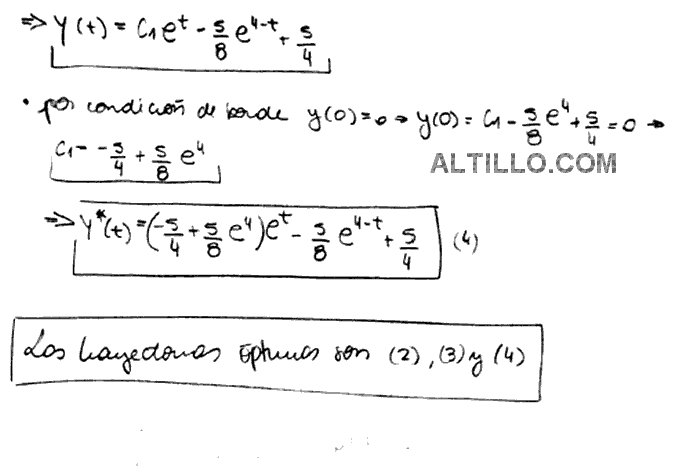 ⇒ y(t) = C₁e^t - 5/8 e^(4-t) + 5/4
• por condición de borde y(0)=0 → y(0) = C₁ - 5/8 e^4 + 5/4 = 0 →
C₁ = -5/4 + 5/8 e^4
ALTILLO.COM
⇒ y*(t) = (-5/4 + 5/8 e^4)e^t - 5/8 e^(4-t) + 5/4 (4)
Las trayectorias óptimas son (2), (3) y (4)